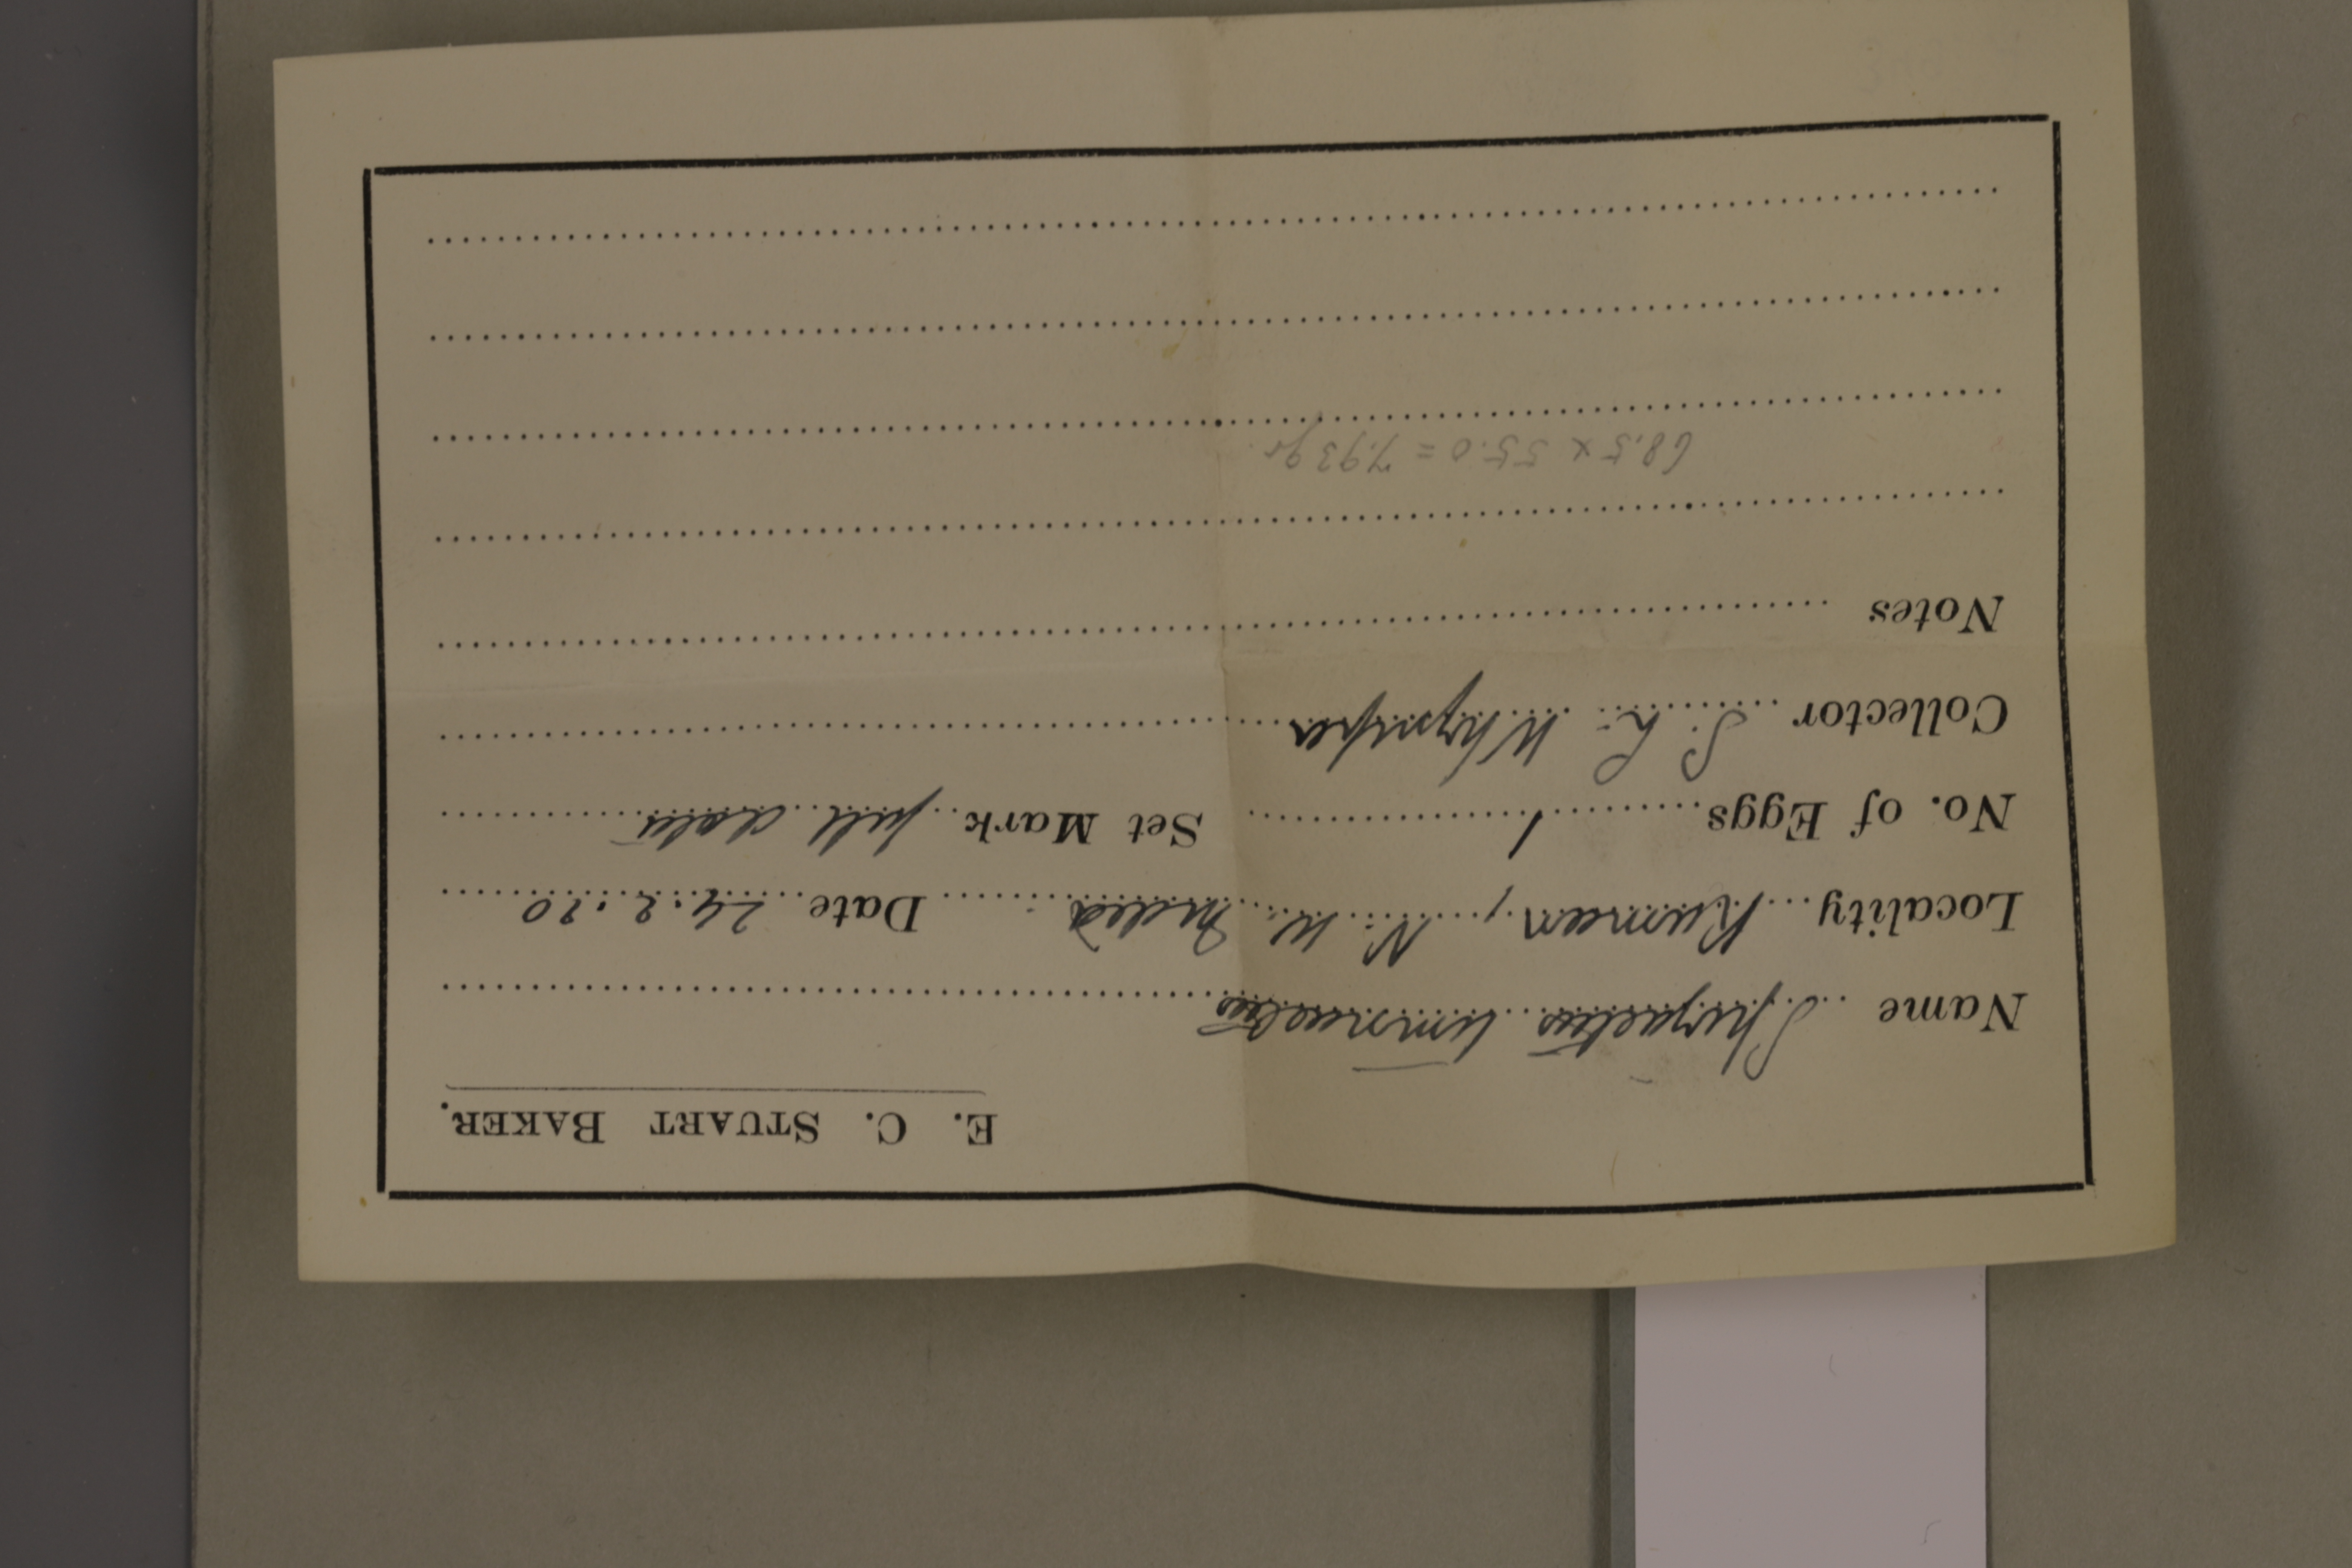 E. C. STUART BAKER.
Name Spizaetus limnaetus
Locality Kumaon, N. W. India Date 24.2.20
No. of Eggs 1 Set Mark full data
Collector S. L. Whymper
Notes
68,5 x 55.0 = 7,93 gr